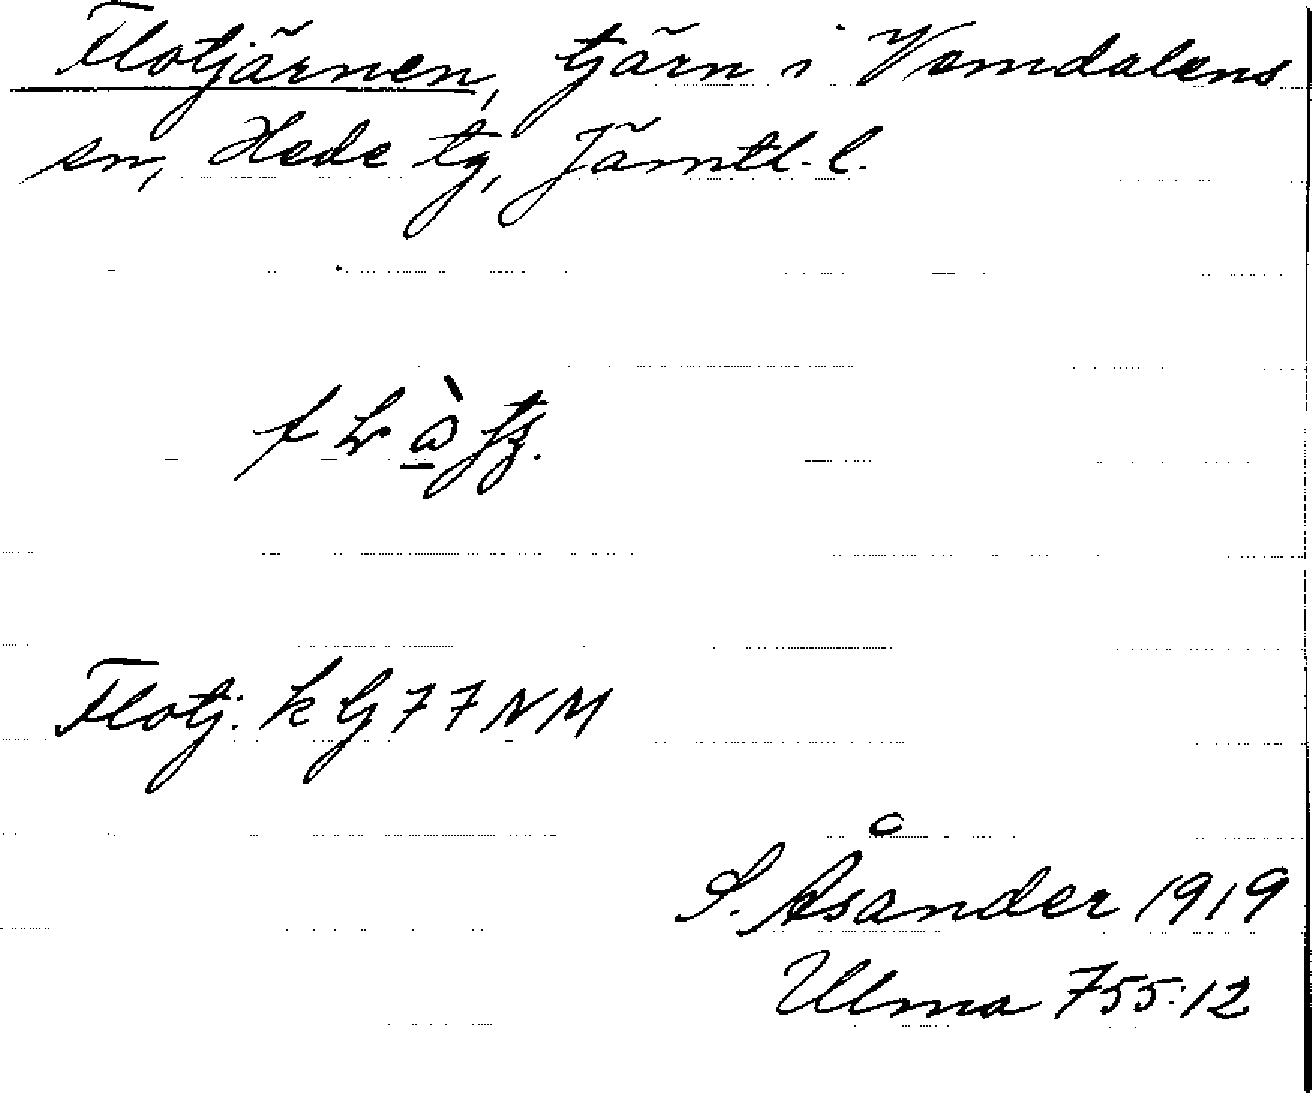 Flotjärnen, tjärn i Vemdalens
sn, Hede tg, Jämtl. l.
Flotj. k G 77 NM
S. Åsander 1919
Ulma 755:12